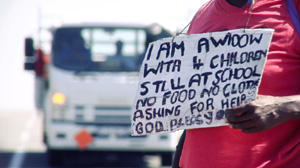 I AM A WIDOW
WITH 4 CHILDREN
STILL AT SCHOOL
NO FOOD NO CLOTH
ASKING FOR HELP
GOD BLESS